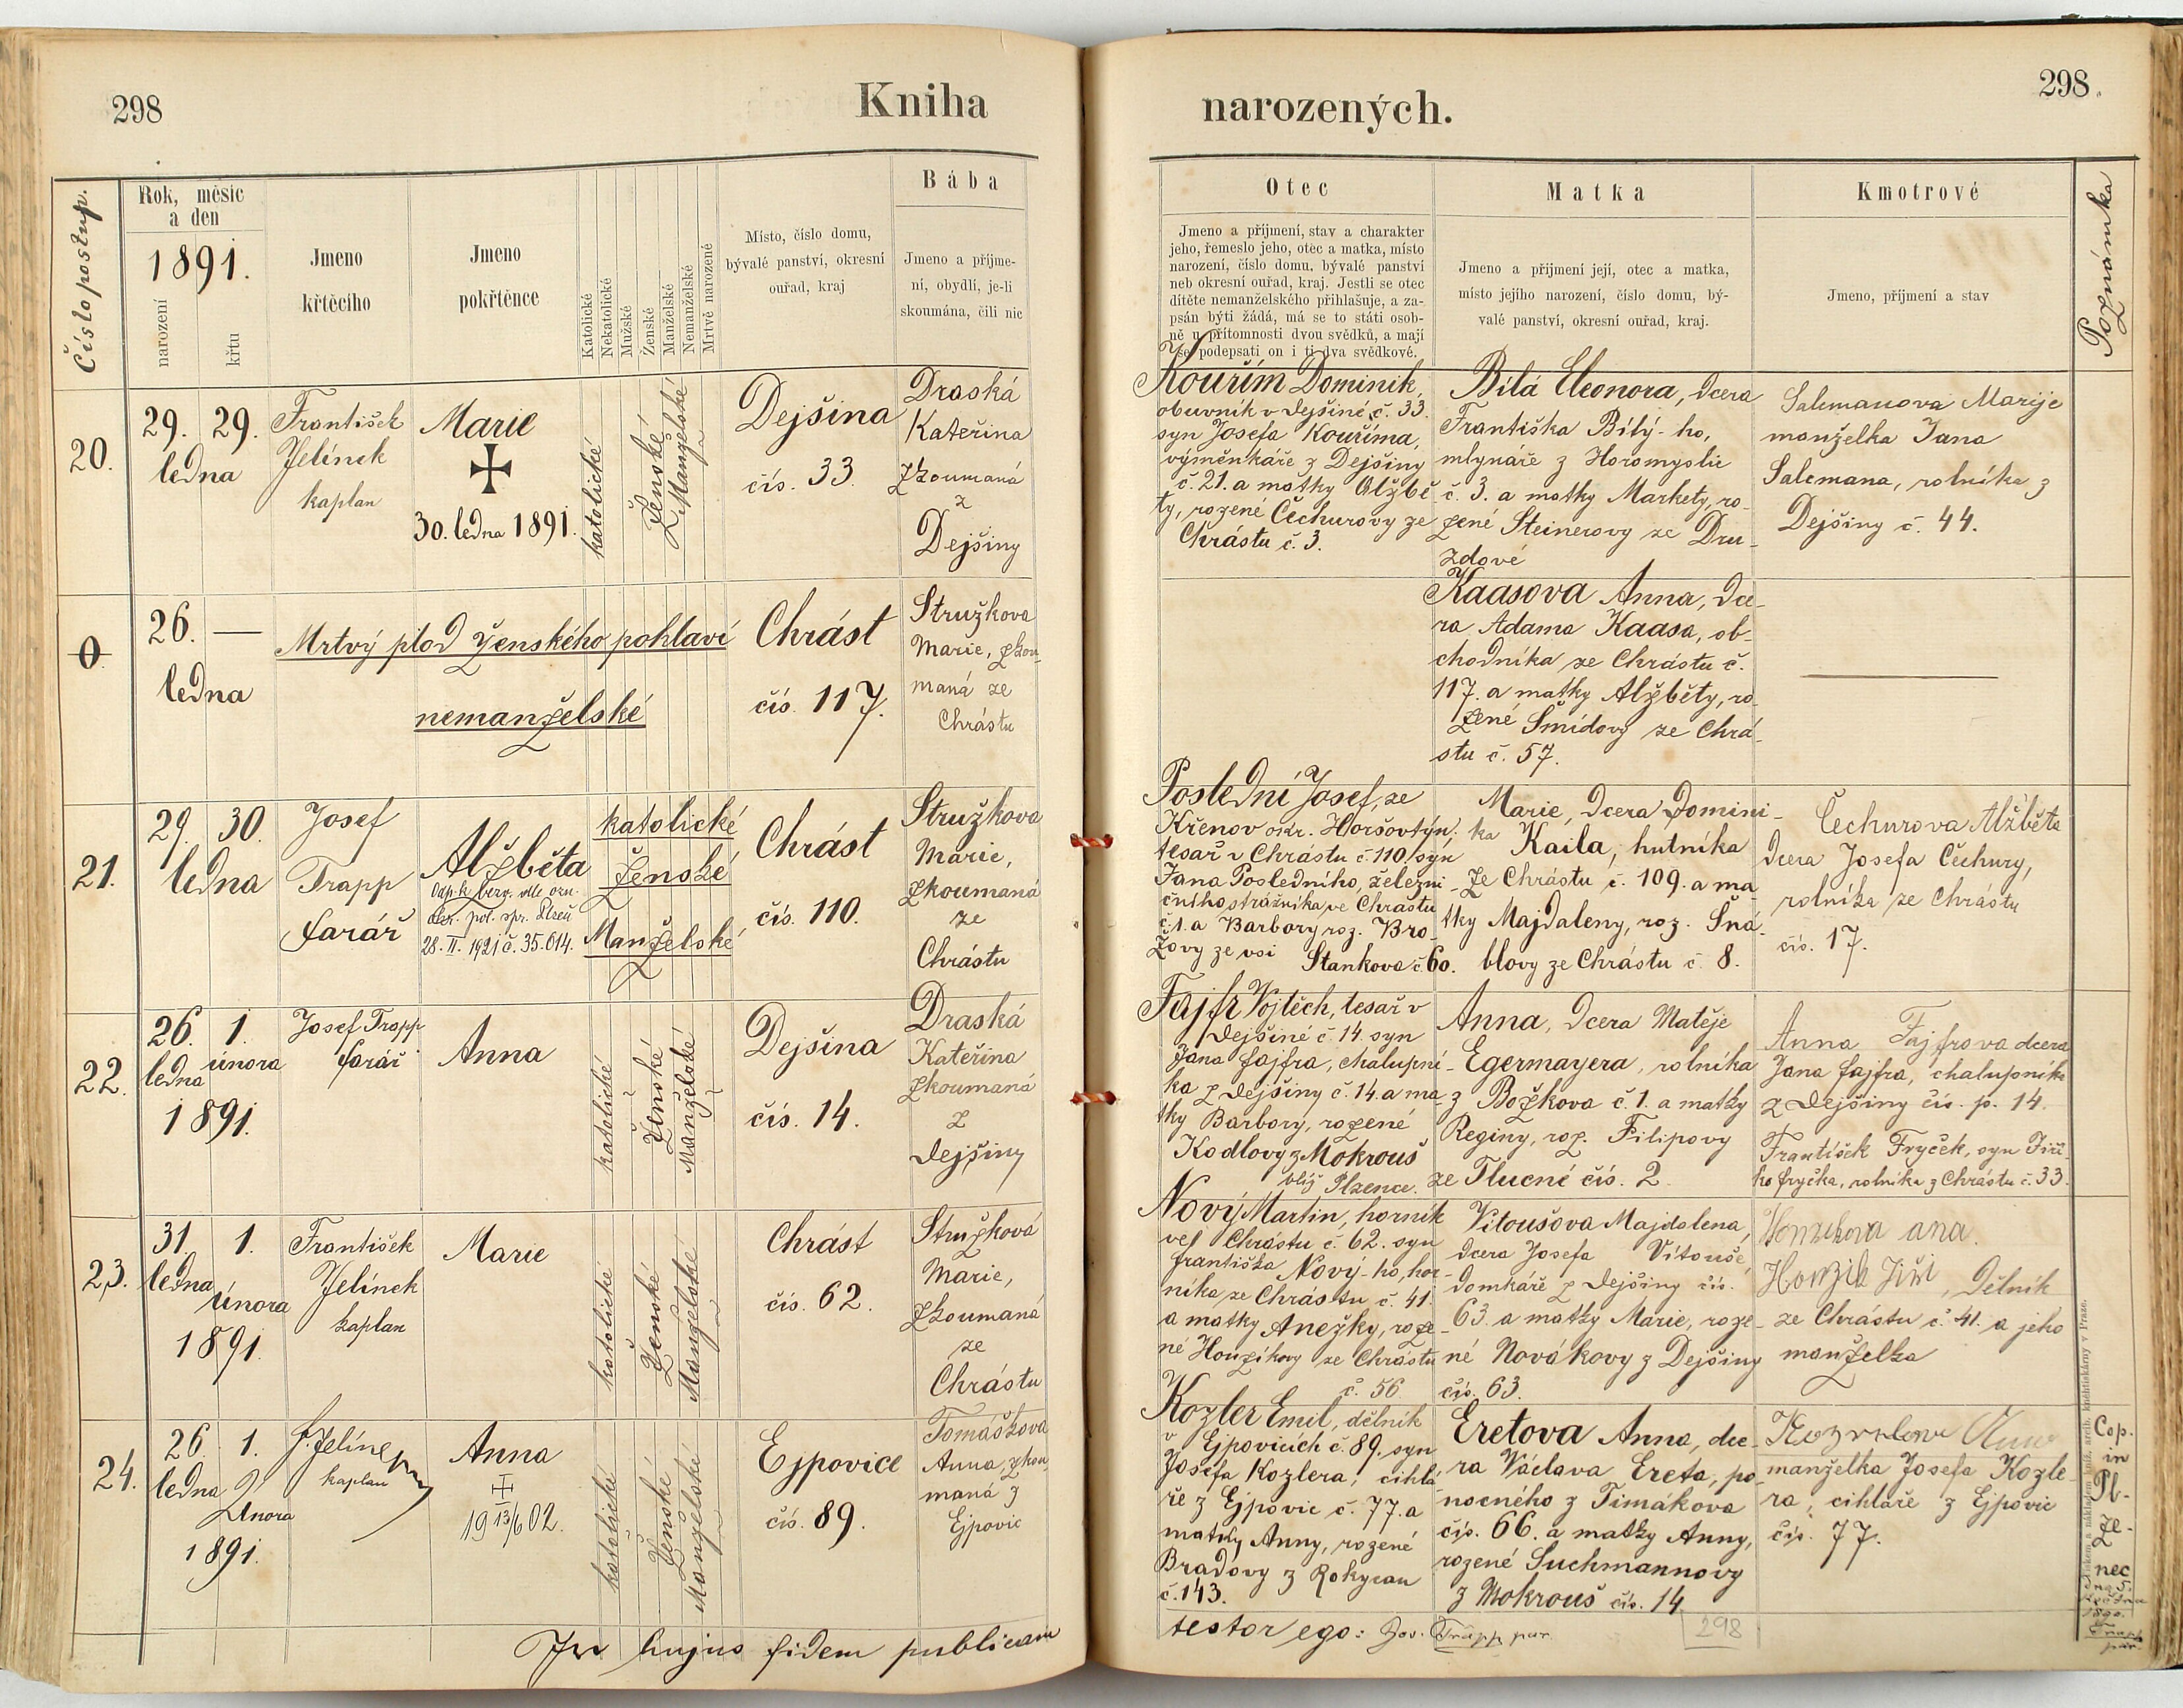 298
Kniha
narozených.
298.
Číslo postup.
Rok, měsíc
a den
1891.
narození
křtu
Jmeno
křtěcího
Jmeno
pokřtěnce
Katolické
Nekatolické
Mužské
Ženské
Manželské
Nemanželské
Mrtvě narozené
Místo, číslo domu,
bývalé panství, okresní
ouřad, kraj
Bába
Jmeno a příjme-
ní, obydlí, je-li
skoumána, čili nic
Otec
Jmeno a příjmení, stav a charakter
jeho, řemeslo jeho, otec a matka, místo
narození, číslo domu, bývalé panství
neb okresní ouřad, kraj. Jestli se otec
dítěte nemanželského přihlašuje, a za-
psán býti žádá, má se to státi osob-
ně u přítomnosti dvou svědků, a mají
se podepsati on i ti dva svědkové.
Matka
Jmeno a příjmení její, otec a matka,
místo jejího narození, číslo domu, bý-
valé panství, okresní ouřad, kraj.
Kmotrové
Jmeno, příjmení a stav
Poznámka
20.
29. 29.
ledna
František
Jelínek
kaplan
Marie
30. ledna 1891.
katolické
Ženské
Manželské
Dejšina
čís. 33.
Draská
Kateřina
zkoumaná
z
Dejšiny
Kouřím Dominik,
obuvník v Dejšině, č. 33.
syn Josefa Kouříma,
výměnkáře z Dejšiny
č. 21. a matky Alžbě
ty, rozené Čechurovy ze
Chrástu č. 3.
Bílá Eleonora, dcera
Františka Bílý-ho,
mlynáře z Horomyslic
č. 3. a matky Markety, ro-
zené Steinerovy ze Dru-
zdové
Salemanova Marije
manželka Jana
Salemana, rolníka z
Dejšiny č. 44.
0
26. —
ledna
Mrtvý plod ženského pohlaví
nemanželské
Chrást
čís. 117.
Stružkova
Marie, zkou-
maná ze
Chrástu
Kaasova Anna, dce-
ra Adama Kaasa, ob-
chodníka ze Chrástu č.
117. a matky Alžběty, ro-
zené Šmídovy ze Chrá-
stu č. 57.
21.
29. 30.
ledna
Josef
Trapp
farář
Alžběta
28. II. 1921 č. 35.614.
katolické
ženské
Manželské
Chrást
čís. 110.
Stružkova
Marie,
zkoumaná
ze
Chrástu
Poslední Josef, ze
Křenov okr. Horšovtýn.
tesař v Chrástu č. 110. syn
Jana Posledního, železni-
čního strážníka ve Chrástu
č. 1. a Barbory roz. Bro-
žovy ze vsi Stankova č. 60.
Marie, dcera Domini-
ka Kaila, hutníka
ze Chrástu č. 109. a ma
tky Majdaleny, roz. Šná-
blovy ze Chrástu č. 8.
Čechurova Alžběta
dcera Josefa Čechury,
rolníka ze Chrástu
čís. 17.
22.
26. 1.
ledna února
1891.
Josef Trapp
farář
Anna
katolické
Ženské
Manželské
Dejšina
čís. 14.
Draská
Kateřina
zkoumaná
z
Dejšiny
Fajfr Vojtěch, tesař v
Dejšině č. 14. syn
Jana Fajfra, chalupní-
ka z Dejšiny č. 14. a ma-
tky Barbory, rozené
Kodlovy z Mokrouš
blíž Plzence.
Anna, dcera Matěje
Egermayera, rolníka
z Božkova č. 1. a matky
Reginy, roz. Filipovy
ze Tlucné čís. 2.
Anna Fajfrova dcera
Jana Fajfra, chalupníka
z Dejšiny čís. p. 14.
František Fryček, syn Jiří-
ho Fryčka, rolníka z Chrástu č. 33.
23.
31. 1.
ledna února
1891.
František
Jelínek
kaplan
Marie
katolické
Ženské
Manželské
Chrást
čís. 62.
Stružková
Marie,
zkoumaná
ze
Chrástu
Nový Martin, horník
vel Chrástu č. 62. syn
Františka Nový-ho, hor-
níka ze Chrástu č. 41.
a matky Anežky, roze-
né Houzíkovy ze Chrástu
č. 56
Vítoušova Majdalena,
dcera Josefa Vítouše,
domkáře z Dejšiny čís.
63. a matky Marie, roze-
né Novákovy z Dejšiny
čís. 63.
ana.
Jiří, dělník
ze Chrástu č. 41. a jeho
manželka
24.
26. 1.
ledna Února
1891.
F. Jelínek
kaplan
Anna
19 13/6 02.
katolické
Ženské
Manželské
Ejpovice
čís. 89.
Tomášková
Anna, zkou-
maná z
Ejpovic
Kozler Emil, dělník
v Ejpovicích č. 89. syn
Josefa Kozlera, cihlá-
ře z Ejpovic č. 77. a
matky Anny, rozené
Bradovy z Rokycan
č. 143.
Eretova Anna, dce-
ra Václava Ereta, po-
nocného z Timákova
čís. 66. a matky Anny,
rozené Suchmannovy
z Mokrouš čís. 14
manželka Josefa Kozle-
ra, cihláře z Ejpovic
čís. 77.
Cop.
in
Pl-
ze-
nec
In hujus fidem publicam
testor ego: Jos. Trapp par.
298